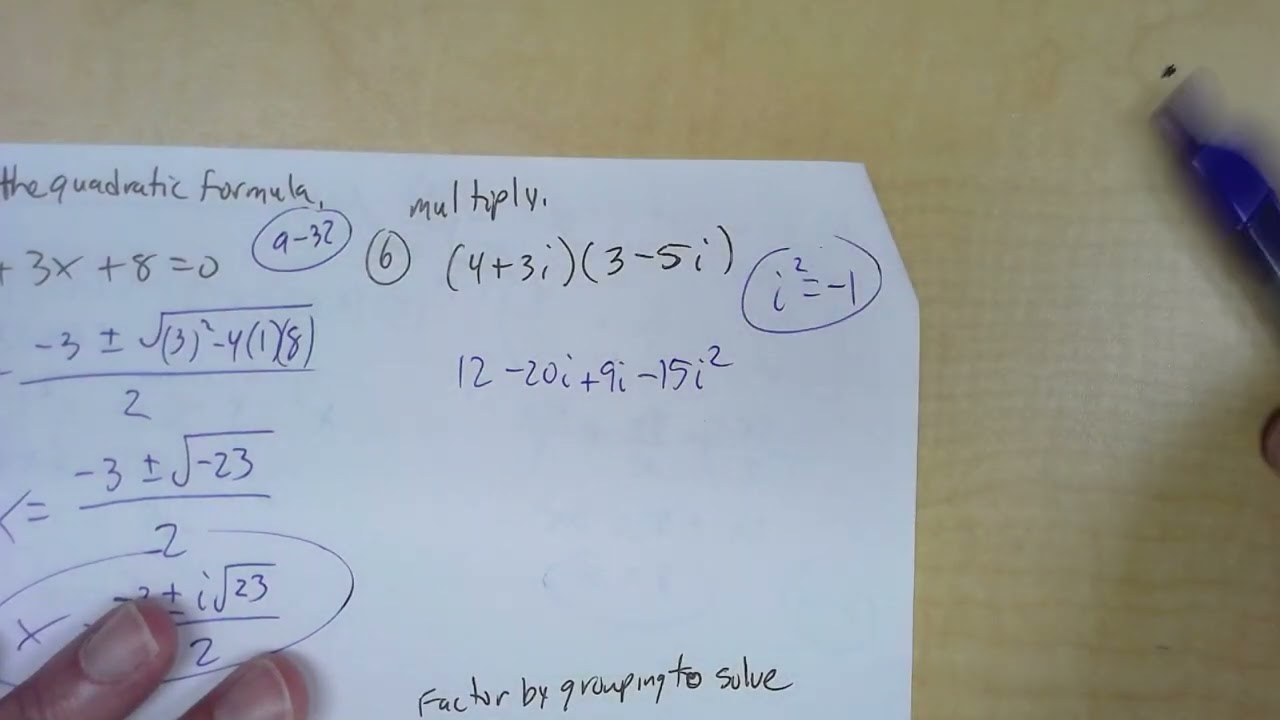 the quadratic formula.
+ 3x + 8 = 0
9-32
-3 ± √(3)²-4(1)(8)
2
-3 ± √-23
2
± i√23
x
2
multiply.
6 (4+3i)(3-5i)
i² = -1
12 - 20i + 9i - 15i²
Factor by grouping to solve